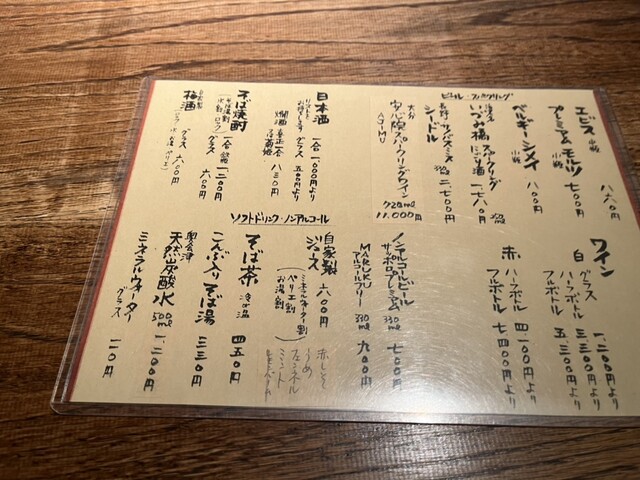 ビール・スパークリング
エビス 小瓶 八六〇円
プレミアムモルツ 小瓶 七〇〇円
ベルギー・シメイ 小瓶 八〇〇円
いづみ橋 スパークリング
にごり酒 一七六〇円
シードル 二七〇〇円
大分
安心院スパークリングワイン
AJIMU
720ml
11,000円
日本酒 一合 一〇〇〇円より
グラス 五〇〇円より
燗酒 八三〇円
そば焼酎
一合
グラス 六〇〇円
自家製
梅酒 グラス 六〇〇円
ワイン
白 グラス 一二〇〇円より
ハーフボトル 三三〇〇円より
フルボトル 五三〇〇円より
赤 ハーフボトル 四一〇〇円より
フルボトル 七四〇〇円より
ソフトドリンク・ノンアルコール
ノンアルコールビール
サッポロプレミアム 330ml 七〇〇円
アルコールフリー 330ml 九〇〇円
自家製
ジュース 六〇〇円
ミネラルウォーター割
ペリエ割
お湯割
赤しそ
うめ
フェンネル
ミント
そば茶 冷・温 四五〇円
こんぶ入りそば湯 三三〇円
奥会津
天然炭酸水 500ml 一二〇〇円
ミネラルウォーター
グラス 一一〇円